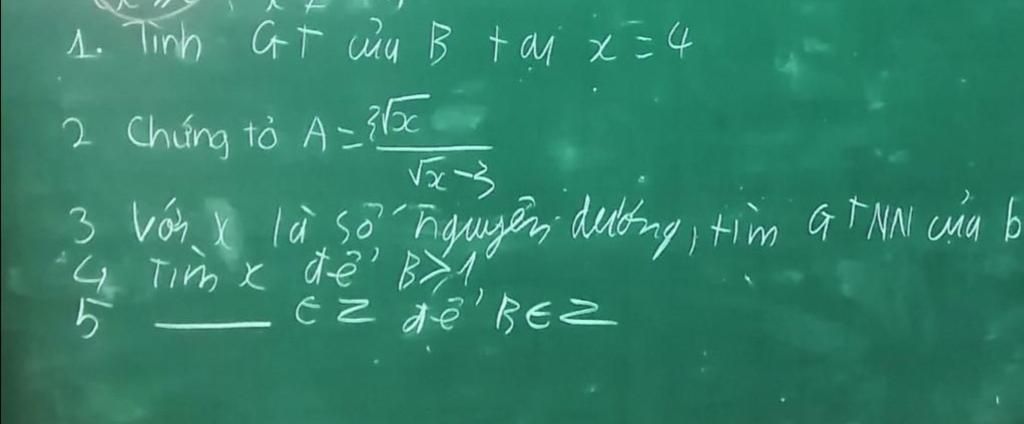 1. Tính GT của B tại x = 4
2 Chứng tỏ A = 3√x / √x - 3
3 Với x là số nguyên dương, tìm GTNN của b
4 Tìm x để B ≥ 1
5 ______ ∈ Z để B ∈ Z